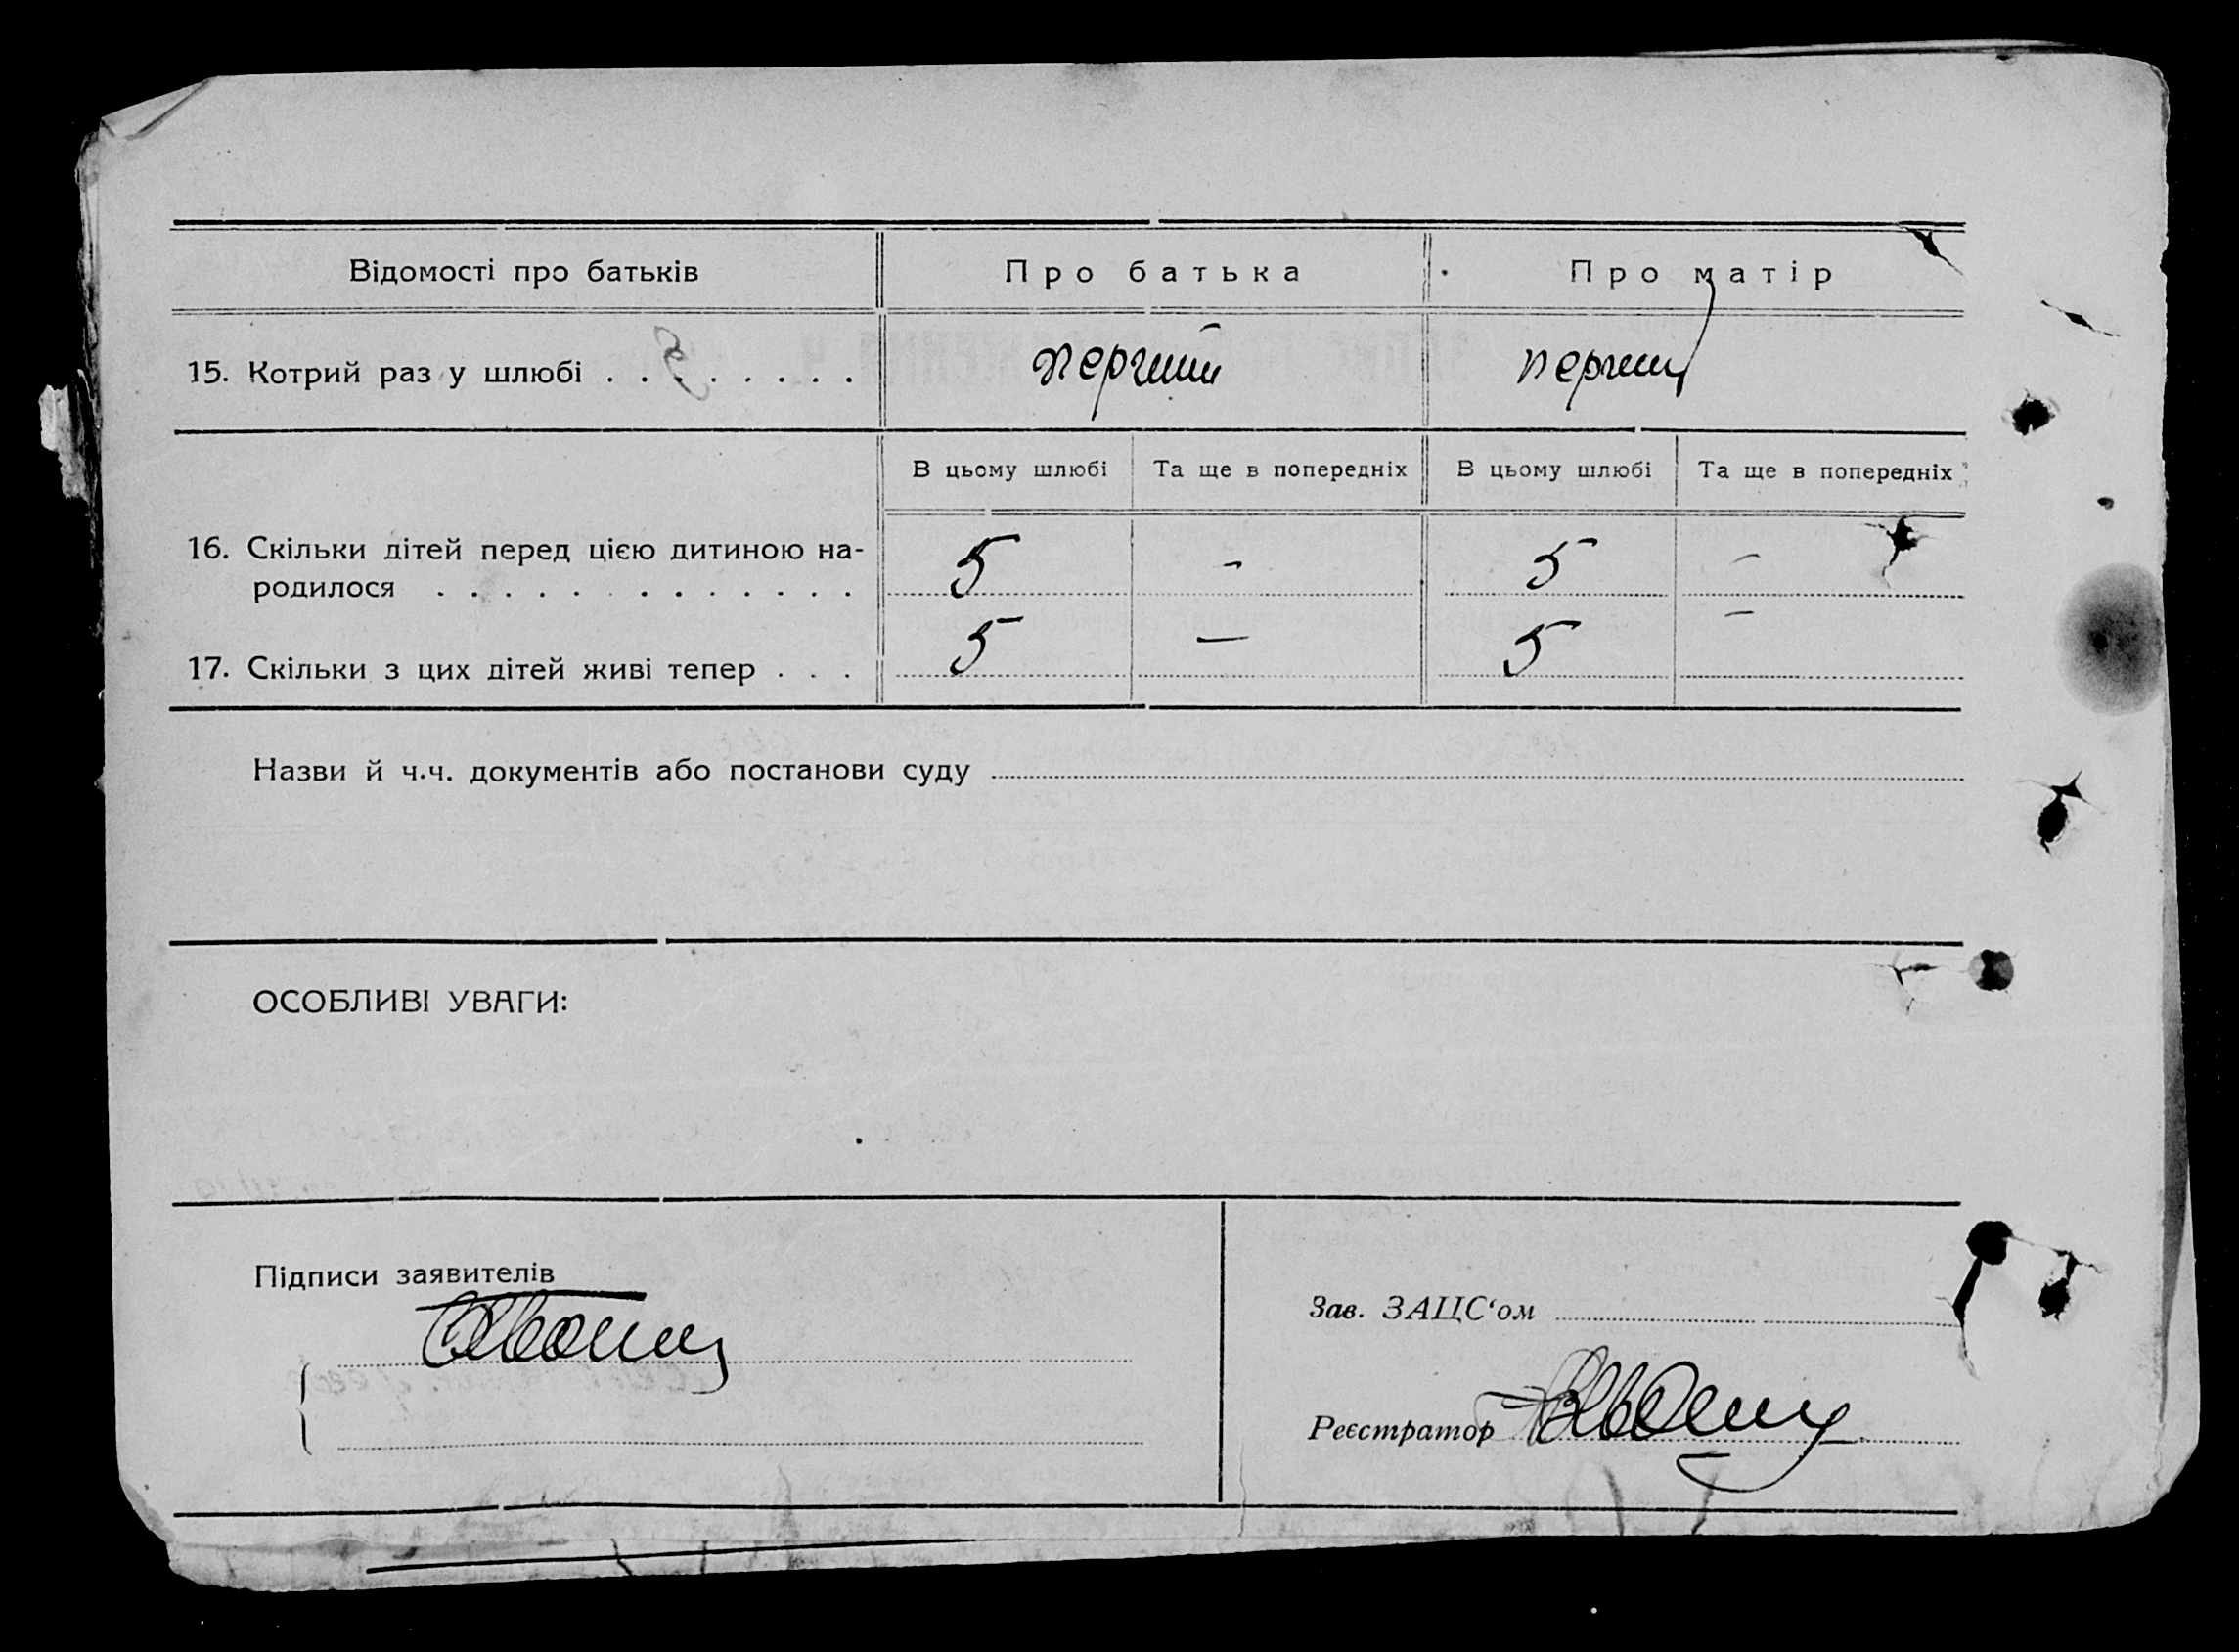 Відомості про батьків Про батька Про матір
15. Котрий раз у шлюбі . . . . . . . . перший перший
В цьому шлюбі Та ще в попередніх В цьому шлюбі Та ще в попередніх
16. Скільки дітей перед цією дитиною на-
родилося . . . . . . . . . . . . . 5 - 5 -
17. Скільки з цих дітей живі тепер . . . 5 - 5 -
Назви й ч.ч. документів або постанови суду
ОСОБЛИВІ УВАГИ:
Підписи заявителів
Зав. ЗАЦС‘ом
Реєстратор